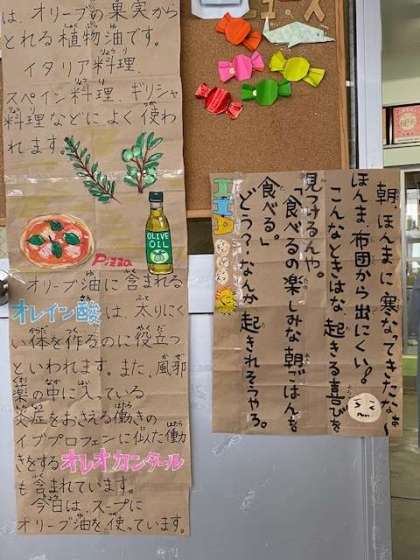 ュース
は、オリーブの果実から
とれる植物油です。
イタリア料理、
スペイン料理、ギリシャ
料理などによく使わ
れます。
OLIVE
OIL
Pizza
オリーブ油に含まれる
オレイン酸は、太りにく
い体を作るのに役立つ
といわれます。また、風邪
薬の中に入っている
炎症をおさえる働きの
イブプロフェンに似た働
きをするオレオカンタール
も含まれています。
今日は、スープに
オリーブ油を使っています。
朝、ほんまに寒なってきたなぁ〜
ほんま、布団から出にくい!
こんなときはな、起きる喜びを
見つけるんや。
「食べるの楽しみな朝ごはんを
食べる。」
どう?なんか起きれそうやろ。